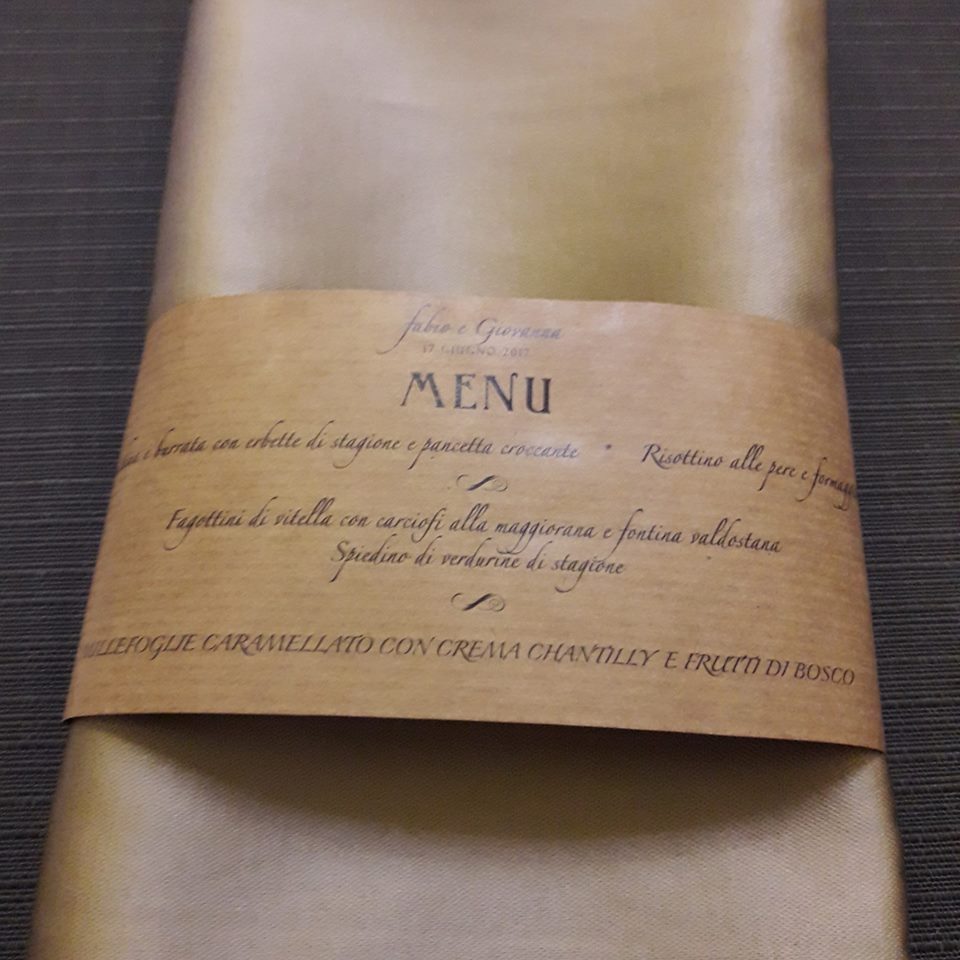 fabio e Giovanna
17 GIUGNO 2017
MENU
e burrata con erbette di stagione e pancetta croccante * Risottino alle pere e
Fagottini di vitella con carciofi alla maggiorana e fontina valdostana
Spiedino di verdurine di stagione
MILLEFOGLIE CARAMELLATO CON CREMA CHANTILLY E FRUTTI DI BOSCO